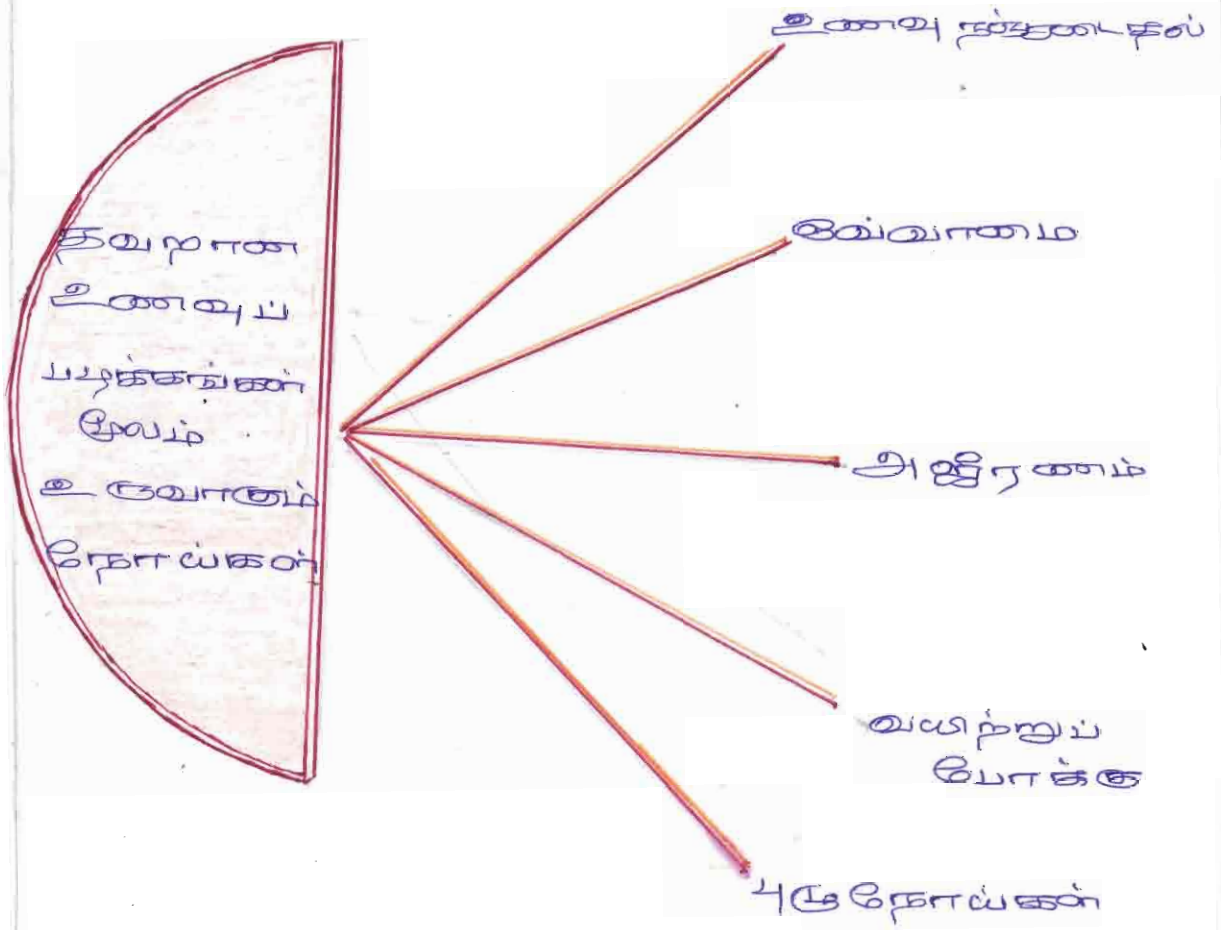 தவறான
உணவுப்
பழக்கங்கள்
மூலம்
உருவாகும்
நோய்கள்
உணவு நஞ்சடைதல்
ஒவ்வாமை
அஜீரணம்
வயிற்றுப்
போக்கு
புழுநோய்கள்